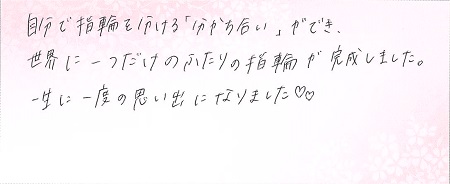 自分で指輪を分ける「分かち合い」ができ、
世界に一つだけのふたりの指輪が完成しました。
一生に一度の思い出になりました♡♡